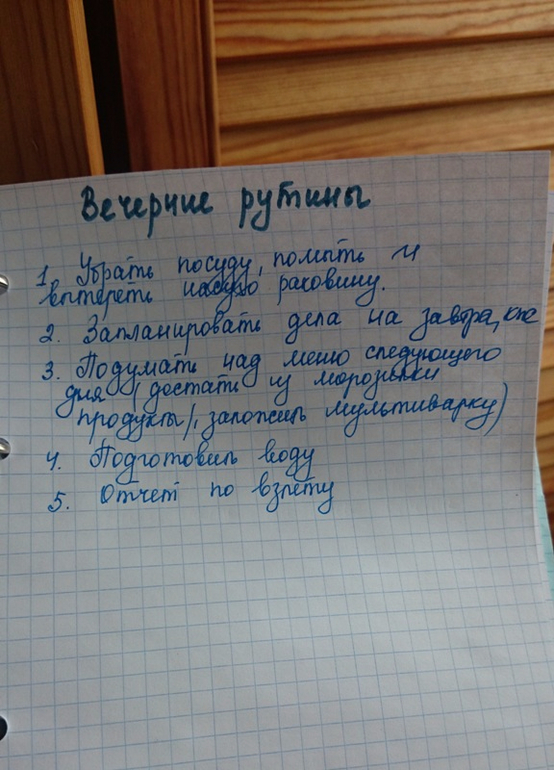 Вечерние рутины
1. Убрать посуду, помыть и
вытереть насухо раковину.
2. Запланировать дела на завтра,
3. Подумать над меню следующего
дня (достать из морозилки
продукты, заложить мультиварку)
4. Подготовить воду
5. Отчет по взлёту